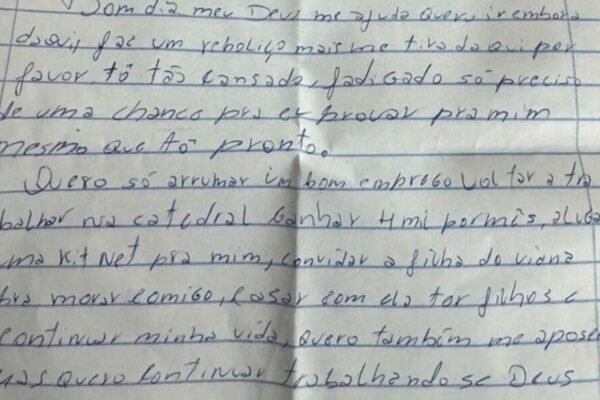 Bom dia meu Deus me ajuda quero ir embora
daqui, faz um reboliço mais me tira daqui por
favor, tô tão cansada, fadigado só preciso
de uma chance pra eu provar pra mim
mesmo que tô pronto.
Quero só arrumar um bom emprego voltar a tra
balhar na catedral Ganhar 4 mil por mês, aluga
uma Kit Net pra mim, convidar a filha do viana
pra morar comigo, casar com ela ter filhos e
continuar minha vida, quero também me apose
mas quero continuar trabalhando se Deus